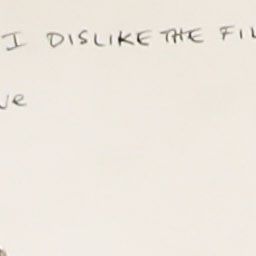 I DISLIKE THE FIL
ve